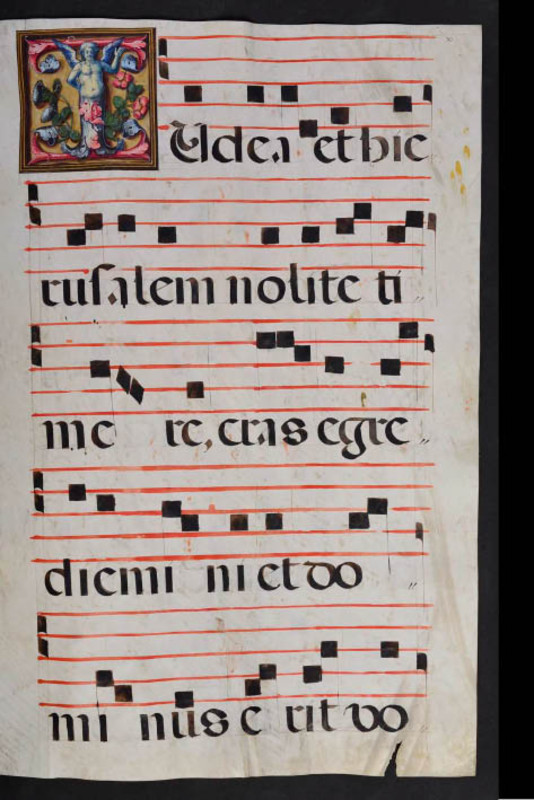 IUdea et hie
rusalem nolite ti
me re, cras egre
diemi ni et do
mi nus e rit vo